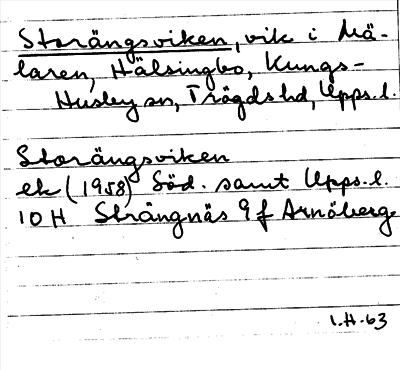 Storängsviken, vik i Mä-
laren, Hälsingbo, Kungs-
Husby sn, Trögds hd, Upps. l.
Storängsviken
ek (1958) Söd. samt Upps. l.
10 H Strängnäs 9 f Arnöberg
1.H.63